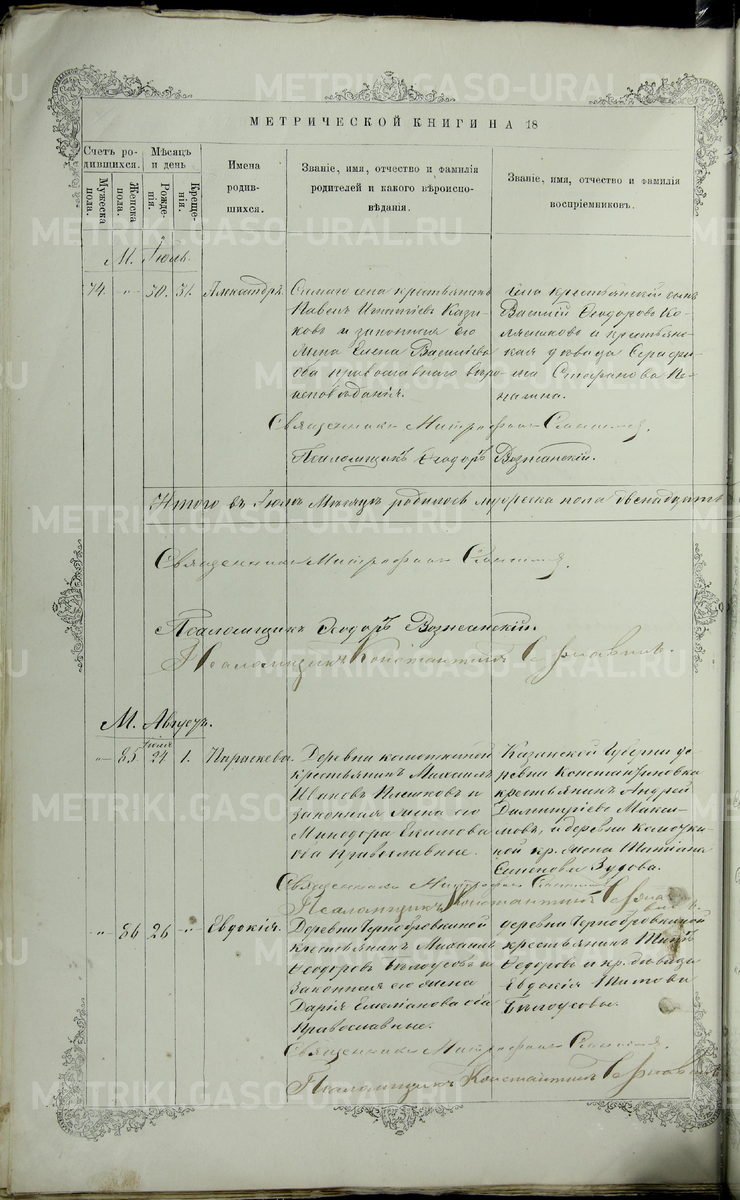 МЕТРИЧЕСКОЙ КНИГИ НА 18
Счетъ ро-
дившихся.
Мужеска пола.
Женска пола.
Мѣсяцъ
и день
Рожде-
нія.
Креще-
нія.
Имена
родив-
шихся.
Званіе, имя, отчество и фамилія
родителей и какого вѣроиспо-
вѣданія.
Званіе, имя, отчество и фамилія
воспріемниковъ.
М. Іюль.
74. „ 30. 31. Александръ.
села крестьянинъ
Павелъ
и законная его
жена Елена Василіева
оба православнаго вѣро
исповѣданія.
села крестьянскій сынъ
Василій Ѳеодоровъ
и крестьянс-
кая дѣвица Серафи-
ма Стефанова
Священникъ Митрофанъ
Псаломщикъ Ѳеодоръ Вознесенскій.
Итого въ Іюлѣ Мѣсяцѣ родилось мужеска пола двенадцать
Священникъ Митрофанъ
Псаломщикъ Ѳеодоръ Вознесенскій.
Псаломщикъ Константинъ
М. Августъ.
„ 85 Іюля 24 1. Параскева.
Деревни
крестьянинъ Михаилъ
Ивановъ и
законная жена его
Минодора Екимова
оба православные.
Казанской Губерніи де-
ревни Константиновка
крестьянинъ Андрей
Димитріевъ Макси-
мовъ, и деревни
кр. жена Татіана
Симонова Зудова.
Священникъ Митрофанъ
Псаломщикъ Константинъ
„ 86 26 „ Евдокія.
Деревни Чернобровкиной
крестьянинъ Михаилъ
Ѳеодоровъ Бѣлоусовъ и
законная его жена
Дарія Емеліанова оба
Православные.
деревни Чернобровкиной
крестьянинъ Титъ
Ѳедоровъ и кр. дѣвица
Евдокія Титова
Бѣлоусовы.
Священникъ Митрофанъ
Псаломщикъ Константинъ
METRIKI.GASO-URAL.RU